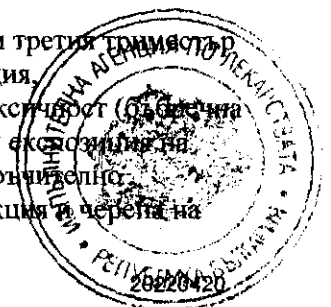 и третия триместър
ция,
ксичност (бъбречна
експозиция на
ръчително
кция и черепа на
ИЗПЪЛНИТЕЛНА АГЕНЦИЯ ПО ЛЕКАРСТВАТА
РЕПУБЛИКА БЪЛГАРИЯ
20220420